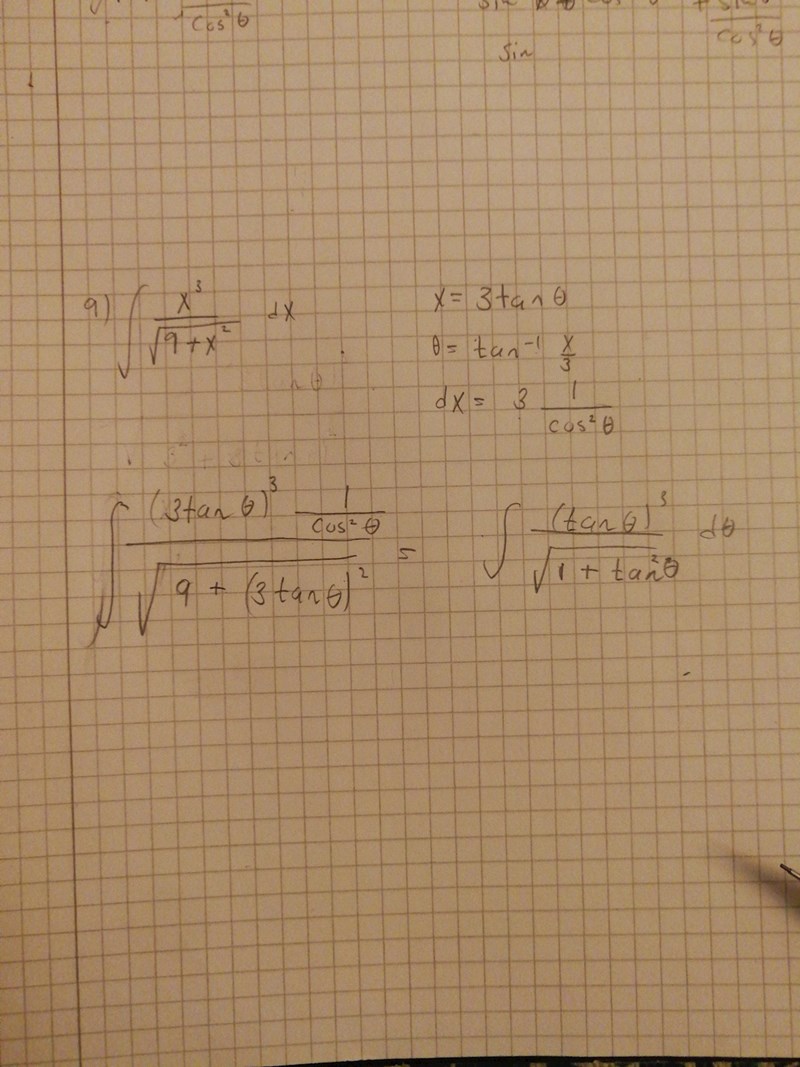 cos²θ
cos²θ
sin
9) ∫ x³ / √(9+x²) dx
x = 3tan θ
θ = tan⁻¹ x/3
dx = 3 1/cos²θ
∫ (3tan θ)³ 1/cos²θ / √(9 + (3tanθ)²) = ∫ (tanθ)³ / √(1 + tan²θ) dθ